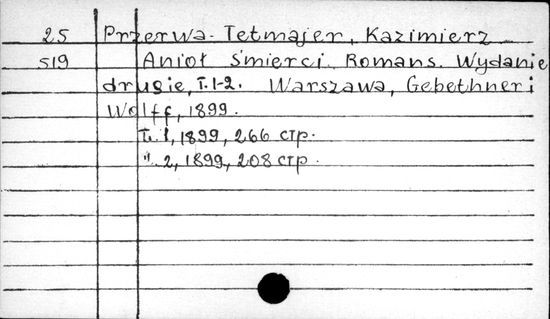 25 Przerwa-Tetmajer, Kazimierz
519 Anioł śmierci. Romans. Wydanie
drugie, T. 1-2. Warszawa, Gebethner i
Wolff, 1899.
T. 1, 1899, 266 стр.
". 2, 1899, 208 стр.